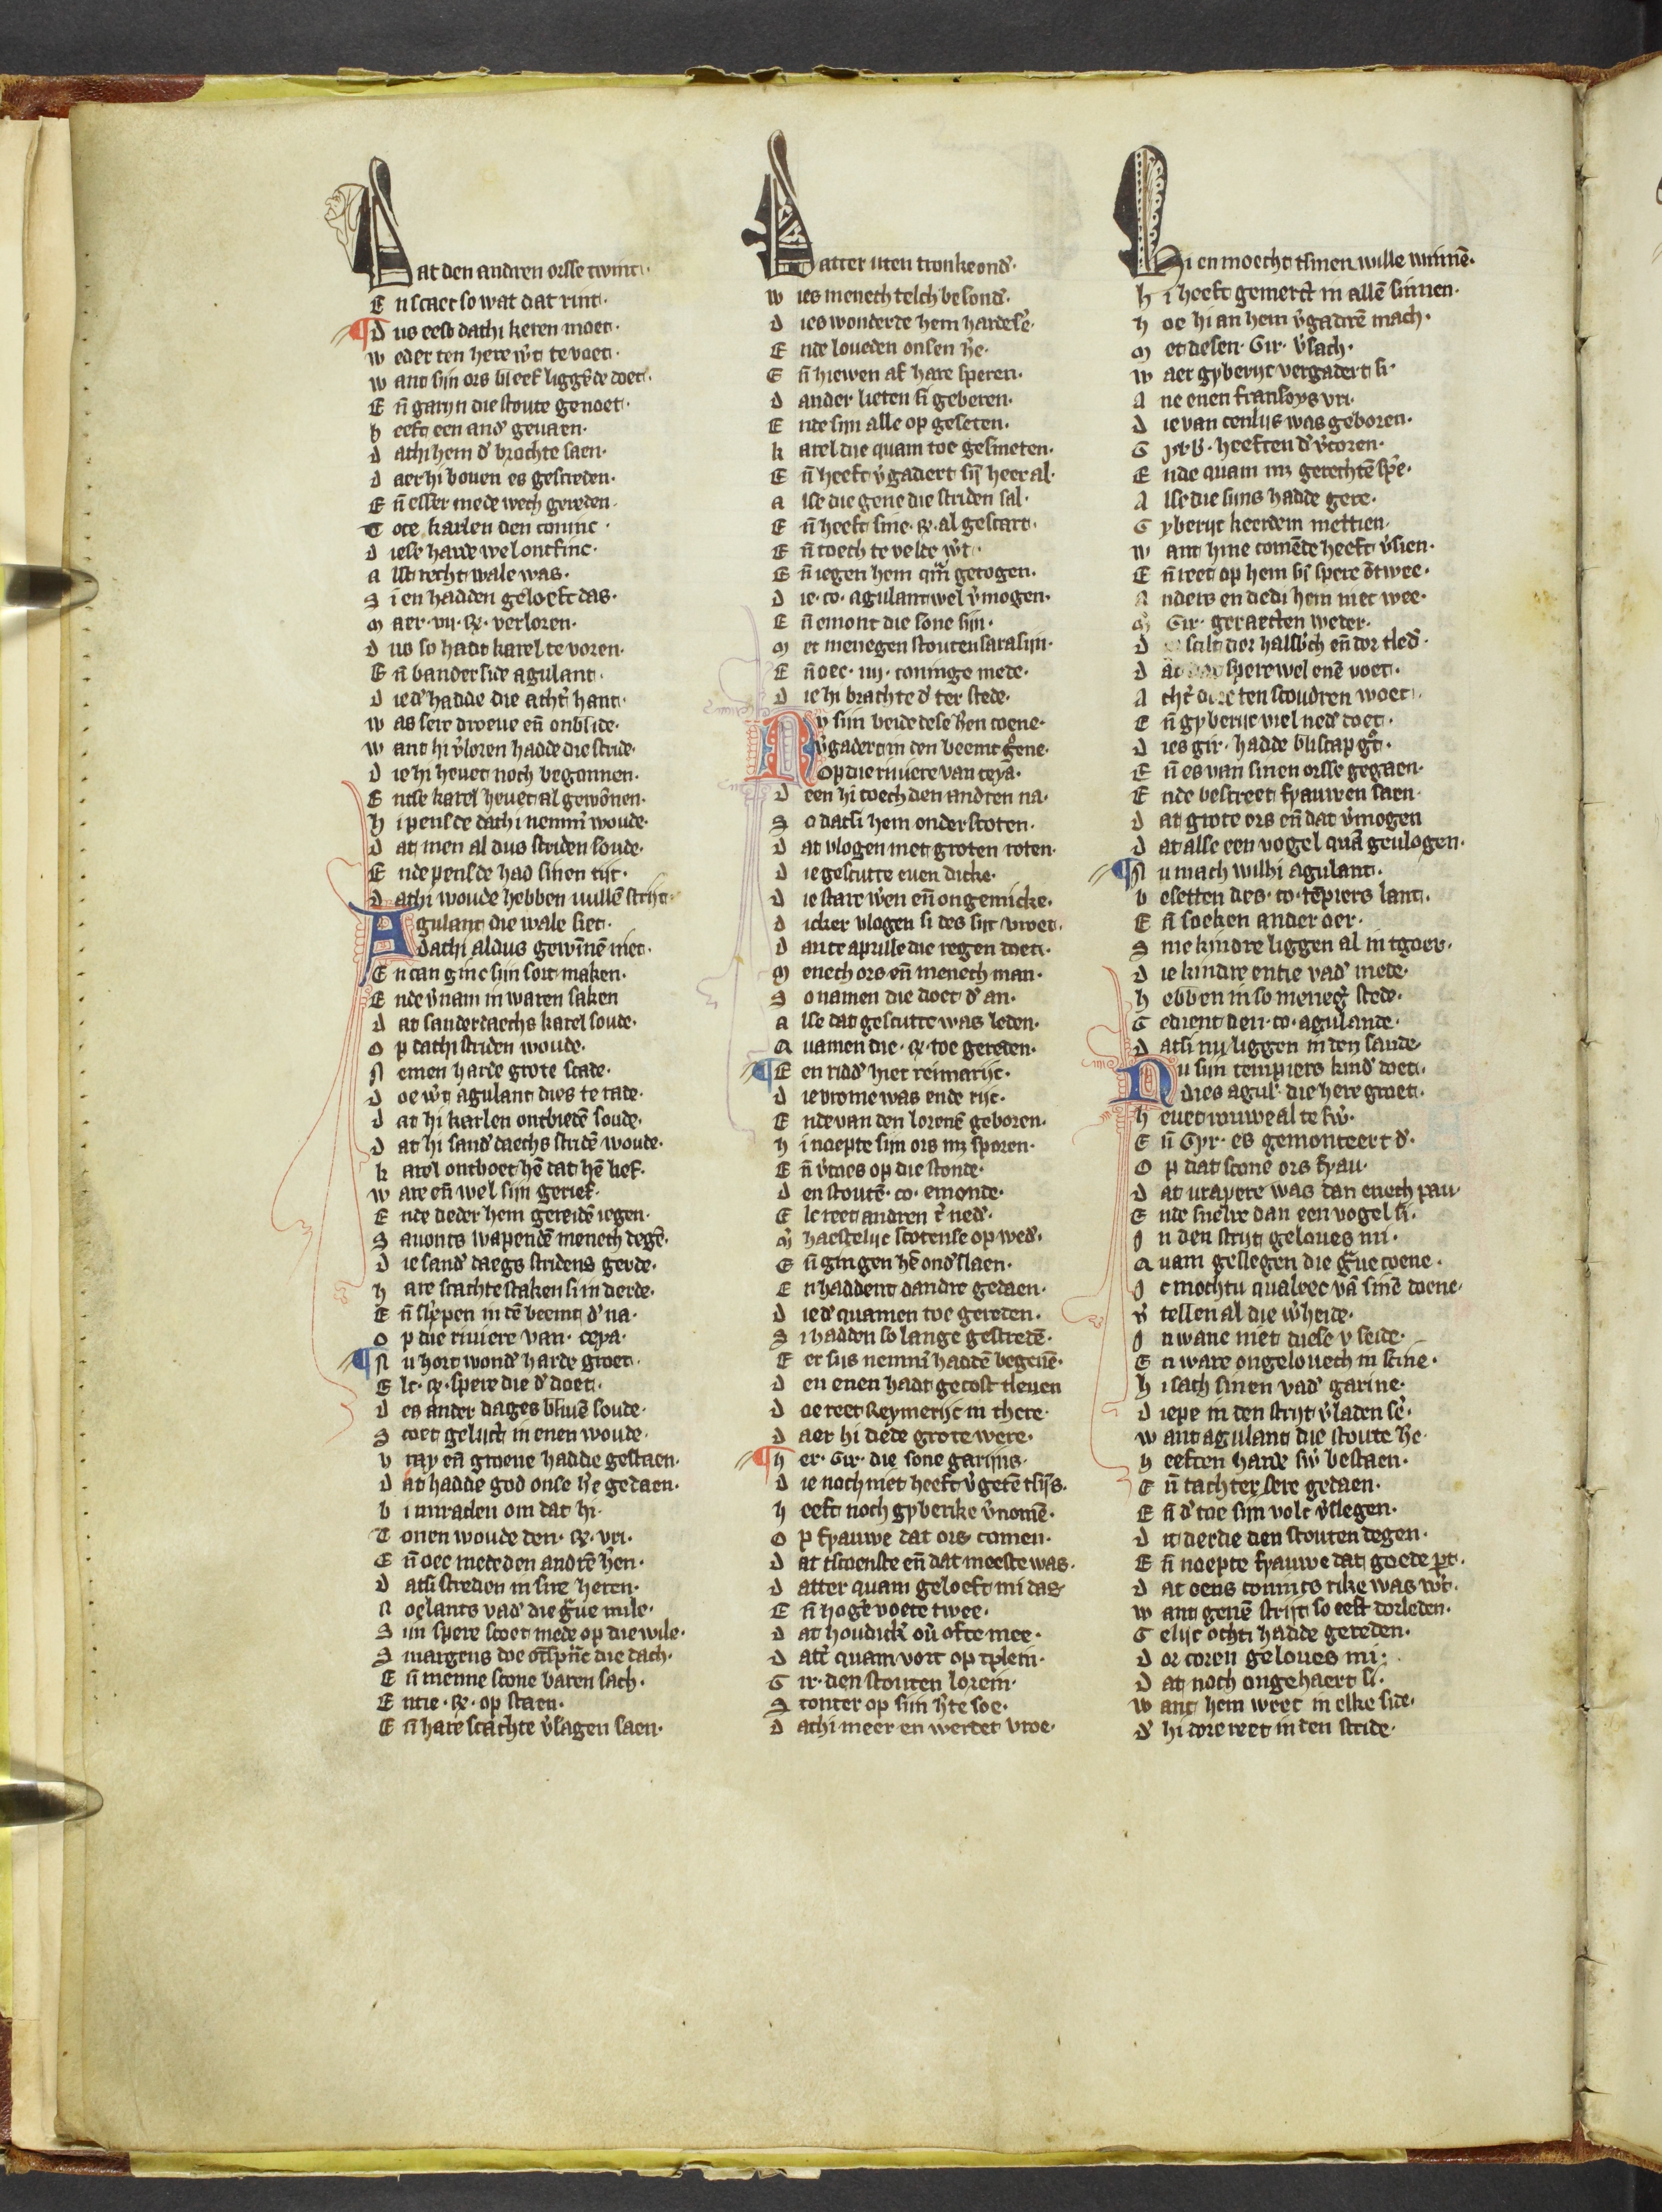 Dat den andren orsse twint·
En scaet so wat dat rint·
¶Dus eest dathi keren moet·
weder ten here w't te voet·
want sijn ors bleef ligg'de doet·
En̄ garijn die stoute genoet·
heeft een and' geuaen·
dathi hem d' brochte saen·
daer hi bouen es gescreden·
En̄ esser mede wech gereden·
Tote karlen den coninc·
diese harde wel ontfinc·
alst recht wale was·
Si en hadden geloeft das·
maer ·vij· verloren·
dus so hadt karel te voren·
En̄ bander side agulant·
die d' hadde die acht' hant·
was sere droeue en̄ onblide·
want hi v'loren hadde die stride·
die hi heuet noch begonnen·
Entse karel heuet al gewōnen·
hi pensde dathi nemm' woude·
dat men al dus striden soude·
Ende pensde had sinen tijt·
dathi woude hebben vullē strijt·
Agulant die wale siet·
dathi aldus gewinnē niet·
En can ginc sijn sout maken·
Ende v'nam in waren saken
dat sanderdaechs karel soude·
op dathi striden woude·
Nemen harde grote scade·
doe w't agulant dies te rade·
dat hi karlen ontbiedē soude·
dat hi sand'daechs stridē woude·
karel ontboet hē dat hē lief·
ware en̄ wel sijn gerief·
Ende dieder hem gereidē iegen·
Sauonts wapendē menech degē·
die sand'daegs stridens gerde·
hare scachte staken si in derde·
En̄ sliepen in tē beemt d' na·
op die riuiere van· ceya·
¶Nu hort wond' harde groet·
Elc· spere die d' doet·
des ander dages bliuē soude·
Stoet gelijc in enen woude·
vray en̄ groene hadde gestaen·
dat hadde god onse h'e gedaen·
bi miraclen om dat hi·
Tonen woude den· vri·
En̄ oec mede den andrē h'en·
datsi streden in sire heren·
Roelants vad' die g'ue mile·
Siin spere stoet mede op die wile·
Smargens doe ontsprāc die dach·
En̄ menne scone baren sach·
Entie· op staen·
En̄ hare scachte v'sagen saen·
Datter uten tronke ond'·
wies menech telch besond'·
dies wonderde hem harde se'·
Ende loueden onsen h'e·
En̄ hiewen af hare speren·
dander lieten si geberen·
Ende sijn alle op geseten·
karel die quam toe gesmeten·
En̄ heeft v'gadert sij̄ heer al·
alse die gene die striden sal·
En̄ heeft sine· al gescart·
En̄ toech te velde w't·
En̄ iegen hem quā getogen·
die· co· agulant wel v'mogen·
En̄ emont die sone sijn·
met menegen stouten sarasijn·
En̄ oec· iiij· coninge mede·
die hi brachte d' ter stede·
Nv sijn beide dese h'en coene·
v'gadert in den beemt g'ene·
op die riuiere van ceyā·
deen hi toech den andren na·
So datsi hem onder scoten·
dat vlogen met groten roten·
die gescutte euen dicke·
die stare w'en en̄ ongemicke·
dicker vlogen si des sijt vroet·
dan te aprille die regen doet·
menech ors en̄ menech man·
So namen die doet d' an·
alse dat gescutte was leden·
Quamen die· toe gereden·
¶Een ridd' hiet reimarijc·
die vrome was ende rijc·
Ende van den lorenē geboren·
hi noepte sijn ors m; sporen·
En̄ v'coes op die stonde·
den stoutē· co· emonde·
Elc reet andren t' ned'·
m' haestelijc scotense op wed'·
En̄ gingen hē ond'slaen·
En haddent dandre gedaen·
die d' quamen toe gereden·
Si hadden so lange gestredē·
Eer sijs nemm' haddē begeuē·
den enen hadt gecost tleuen
doe reet Reymerijc in there·
daer hi dede grote were·
¶her· Gir· die sone garijns·
die noch niet heeft v'getē tsijs·
heeft noch gyberike v'nomē·
op fyauwe dat ors comen·
dat tscoenste en̄ dat meeste was·
datter quam geloeft mi das
En̄ hoge voete twee·
dat houdick' ou' ofte mee·
dat' quam vort op tplein·
Gir· den stouten lorein·
Stonter op siin h'te soe·
dathi meer en werdet vroe·
Hi en moecht tsinen wille winnē·
hi heeft gemerct in allē sinnen·
hoe hi an hem v'gadrē mach·
met desen· Gir· v'sach·
waer gyberijc vergadert si·
ane enen fransoys vri·
die van cenlijs was geboren·
Gyb· heeften d' v'coren·
Ende quam m; gerechtē spe'e·
alse die sijns hadde gere·
Gyberijc keerdem mettien·
want hine comēde heeft v'sien·
En̄ reet op hem sij̄ spere ōtwee·
anders en dedi hem niet wee·
m' Gir· geraecten weder·
d scilt dor halsb'ch en̄ dor tled'·
dat spere wel enē voet·
acht' dore ten scoudren woet·
En̄ gyberijc viel ned' doet·
dies gir· hadde bliscap g't·
En̄ es van sinen orsse gegaen·
Ende bescreet fyauwen saen·
dat grote ors en̄ dat v'mogen
dat alse een vogel quā geulogen·
¶Nu mach wilhi agulant·
besetten des· co· tēpiers lant·
En̄ soeken ander oer·
Sine kindre liggen al in tgoer·
die kindre entie vad' mede·
hebben in so meneg' stede·
Gedient den· co· agulande·
datsi nu liggen in den sande·
Nu sijn tempiers kind' doet·
dies agul'· die here groet·
heuet rouwe al te sw'·
En̄ Gyr· es gemonteert d'·
op dat scone ors fyau·
dat vrapere was dan enech pau·
Ende snelre dan een vogel si·
In den strijt geloues mi·
Quam geslegen die g'ue coene·
Ic mochtu qualeec vā sinē doene·
v' tellen al die w'heide·
In wane niet diese v seide·
En ware ongelouech in scine·
hi sach sinen vad' garine·
diepe in den strijt v'laden se'·
want agulant die stoute h'e·
heeften harde sw' bestaen·
En̄ tachter sere gedaen·
En̄ d' toe sijn volc v'slegen·
dit derde den stouten degen·
En̄ noepte fyauwe dat goede p't·
dat oens conincs rike was w't·
want genē strijt so eest dorleden·
Gelijc ochti hadde gereden·
dor coren geloues mi·
dat noch ongehaert si·
want hem weec in elke side·
d' hi dore reet in den stride·